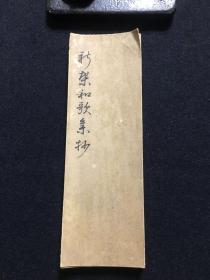 新葉和歌集抄